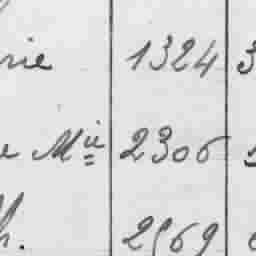 rie 1324 3
e Mie 2306
h. 2569